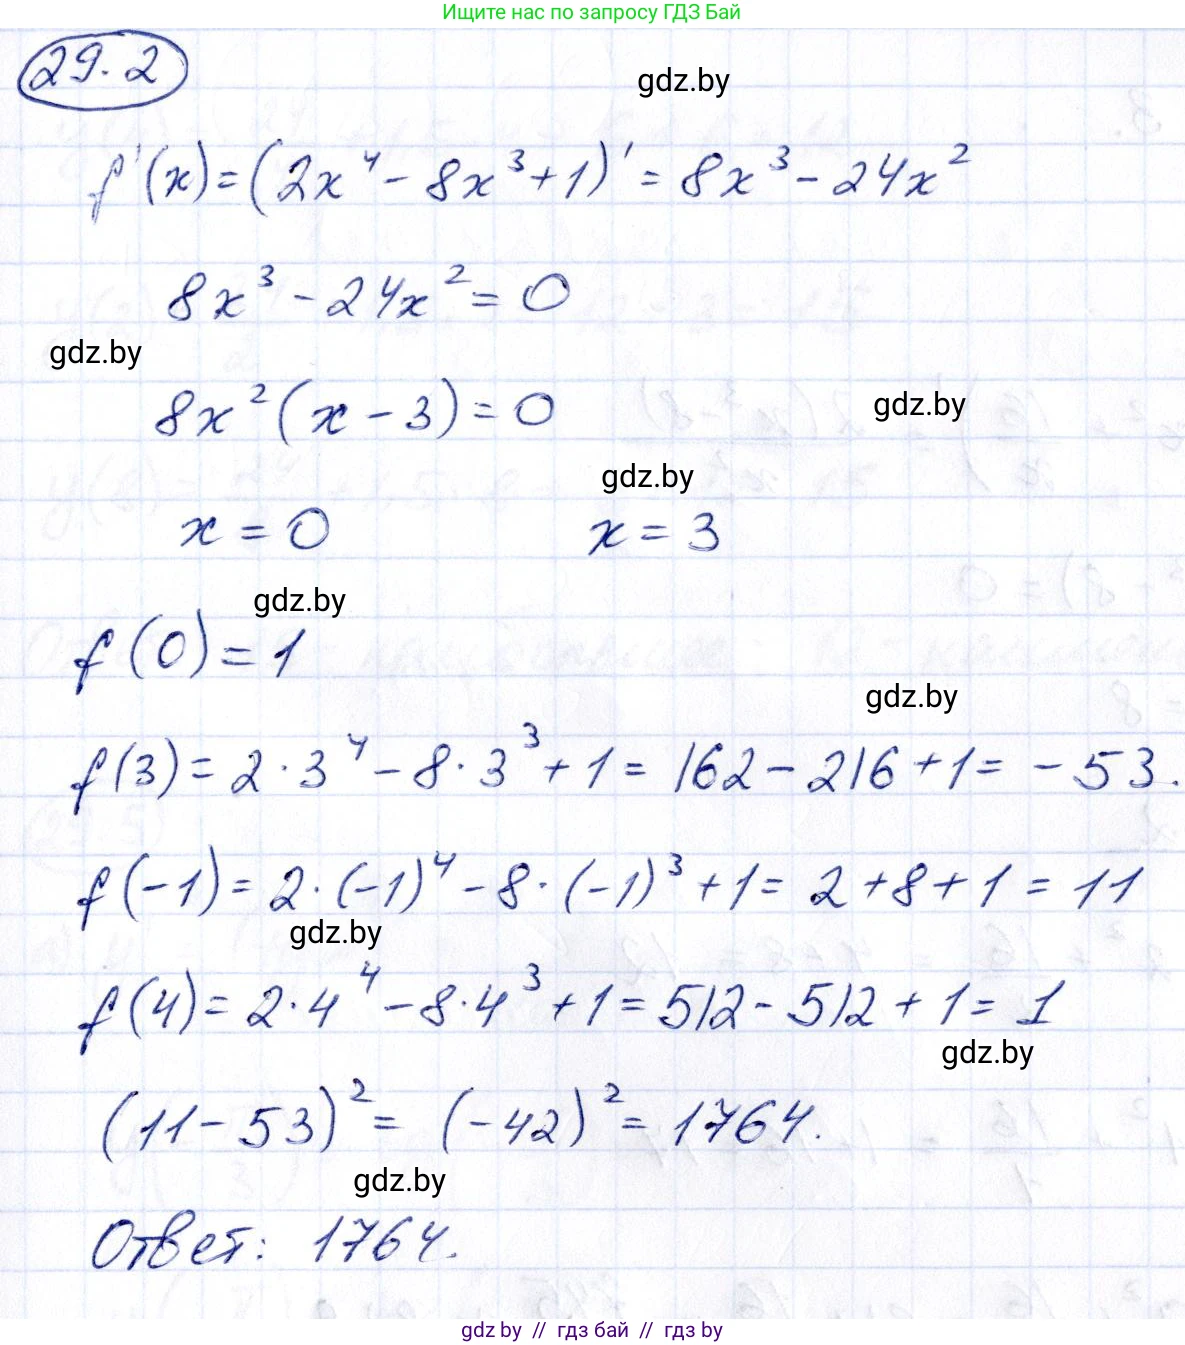 Ищите нас по запросу ГДЗ Бай
29.2
gdz.by
f'(x) = (2x⁴ - 8x³ + 1)' = 8x³ - 24x²
8x³ - 24x² = 0
gdz.by
8x² (x - 3) = 0
gdz.by
gdz.by
x = 0 x = 3
gdz.by
f(0) = 1
gdz.by
f(3) = 2 · 3⁴ - 8 · 3³ + 1 = 162 - 216 + 1 = - 53.
f(-1) = 2 · (-1)⁴ - 8 · (-1)³ + 1 = 2 + 8 + 1 = 11
gdz.by
f(4) = 2 · 4⁴ - 8 · 4³ + 1 = 512 - 512 + 1 = 1
gdz.by
(11 - 53)² = (-42)² = 1764.
gdz.by
Ответ: 1764.
gdz by // гдз бай // гдз by